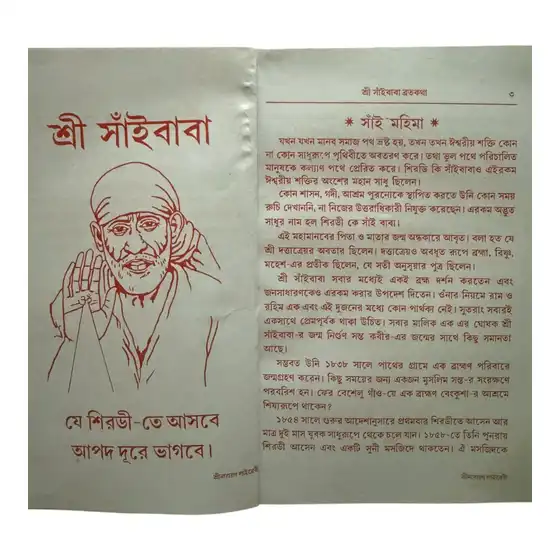 শ্রী সাঁইবাবা
যে শিরডী-তে আসবে
আপদ দূরে ভাগবে।
শ্রীনারায়ণ লাইব্রেরী
শ্রী সাঁইবাবা ব্রতকথা ৩
* সাঁই মহিমা *
যখন যখন মানব সমাজ পথ ভ্রষ্ট হয়, তখন তখন ঈশ্বরীয় শক্তি কোন
না কোন সাধুরূপে পৃথিবীতে অবতরণ করে। তথা ভুল পথে পরিচালিত
মানুষকে কল্যাণ পথে প্রেরিত করে। শিরডি কি সাঁইবাবাও এইরকম
ঈশ্বরীয় শক্তির অংশের মহান সাধু ছিলেন।
কোন শাসন, গদী, আশ্রম পুরনোকে স্থাপিত করতে উনি কোন সময়
রুচি দেখাননি, না নিজের উত্তরাধিকারী নিযুক্ত করেছেন। এরকম অদ্ভুত
সাধুর নাম হল শিরডী কে সাঁই বাবা।
এই মহামানবের পিতা ও মাতার জন্ম অন্ধকারে আবৃত। বলা হত যে
শ্রী দত্তাত্রেয়র অবতার ছিলেন। দত্তাত্রেয়ও অবধূত রূপে ব্রহ্মা, বিষ্ণু,
মহেশ-এর প্রতীক ছিলেন, যে সতী অনুসূয়ার পুত্র ছিলেন।
শ্রী সাঁইবাবা সবার মধ্যেই একই ব্রহ্ম দর্শন করতেন এবং
জনসাধারণকেও এরকম করার উপদেশ দিতেন। ওঁনার নিয়মে রাম ও
রহিম এক এবং এই দুজনের মধ্যে কোন পার্থক্য নেই। সুতরাং সবারই
একসাথে প্রেমপূর্বক থাকা উচিত। সবার মালিক এক এয় ঘোষক শ্রী
সাঁইবাবা-র জন্ম নির্গুণ সন্ত কবীর-এর জন্মের সাথে কিছু সমানতা
আছে।
সম্ভবত উনি ১৮৩৮ সালে পাথের গ্রামে এক ব্রাহ্মণ পরিবারে
জন্মগ্রহণ করেন। কিছু সময়ের জন্য একজন মুসলিম সন্ত-র সংরক্ষণে
পরবরিশ হন। ফের বেশেলু গাঁও-যে এক ব্রাহ্মণ বেংকুশা-র আশ্রমে
শিষ্যরূপে থাকেন?
১৮৫৪ সালে গুরুর আদেশানুসারে প্রথমবার শিরডীতে আসেন আর
মাত্র দুই মাস যুবক সাধুরূপে থেকে চলে যান। ১৮৫৮-তে তিনি পুনরায়
শিরডী আসেন এবং একটি সুনী মসজিদে থাকতেন। ঐ মসজিদকে
শ্রীনারায়ণ লাইব্রেরী